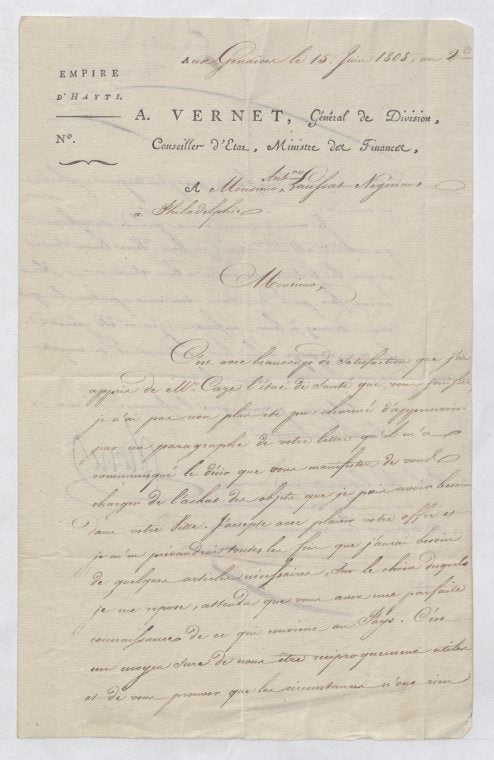 Aux Gonaïves le 15. Juin 1805, an 2e
EMPIRE
D'HAYTI.
No.
A. VERNET, Général de Division,
Conseiller d'Etat, Ministre des Finances,
A Monsieur Antne Laussat Négociant
à Philadelphie.
Monsieur,
C'est avec beaucoup de satisfaction que j'ai
appris de Mr. Caze l'état de Santé que vous jouissez,
je n'ai pas non plus été peu charmé d'appercevoir
par un paragraphe de votre lettre qu'il m'a
communiqué le désir que vous manifestez de vous
charger de l'achat des objets que je puis avoir besoin
dans votre Ville. J'accepte avec plaisir votre offre et
je m'en prévaudrai toutes les fois que j'aurai besoin
de quelques articles nécessaires, sur le choix desquels
je me repose, attendu que vous avez une parfaite
connaissance de ce qui convient au Pays. C'est
un moyen sure de nous être réciproquement utiles
et de vous prouver que les circonstances n'ont rien